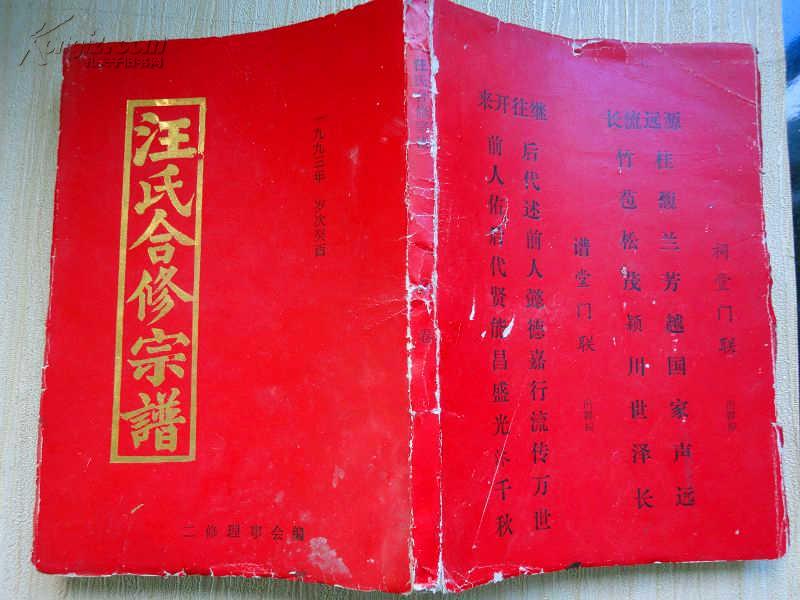 汪氏合修宗譜
一九九三年 岁次癸酉
二修理事会编
汪氏合修宗
卷
祠堂门联
源远流长
桂馥兰芳越国家声远
竹苞松茂颖川世泽长
谱堂门联
继往开来
后代述前人懿德嘉行流传万世
前人佑后代贤能昌盛光 千秋